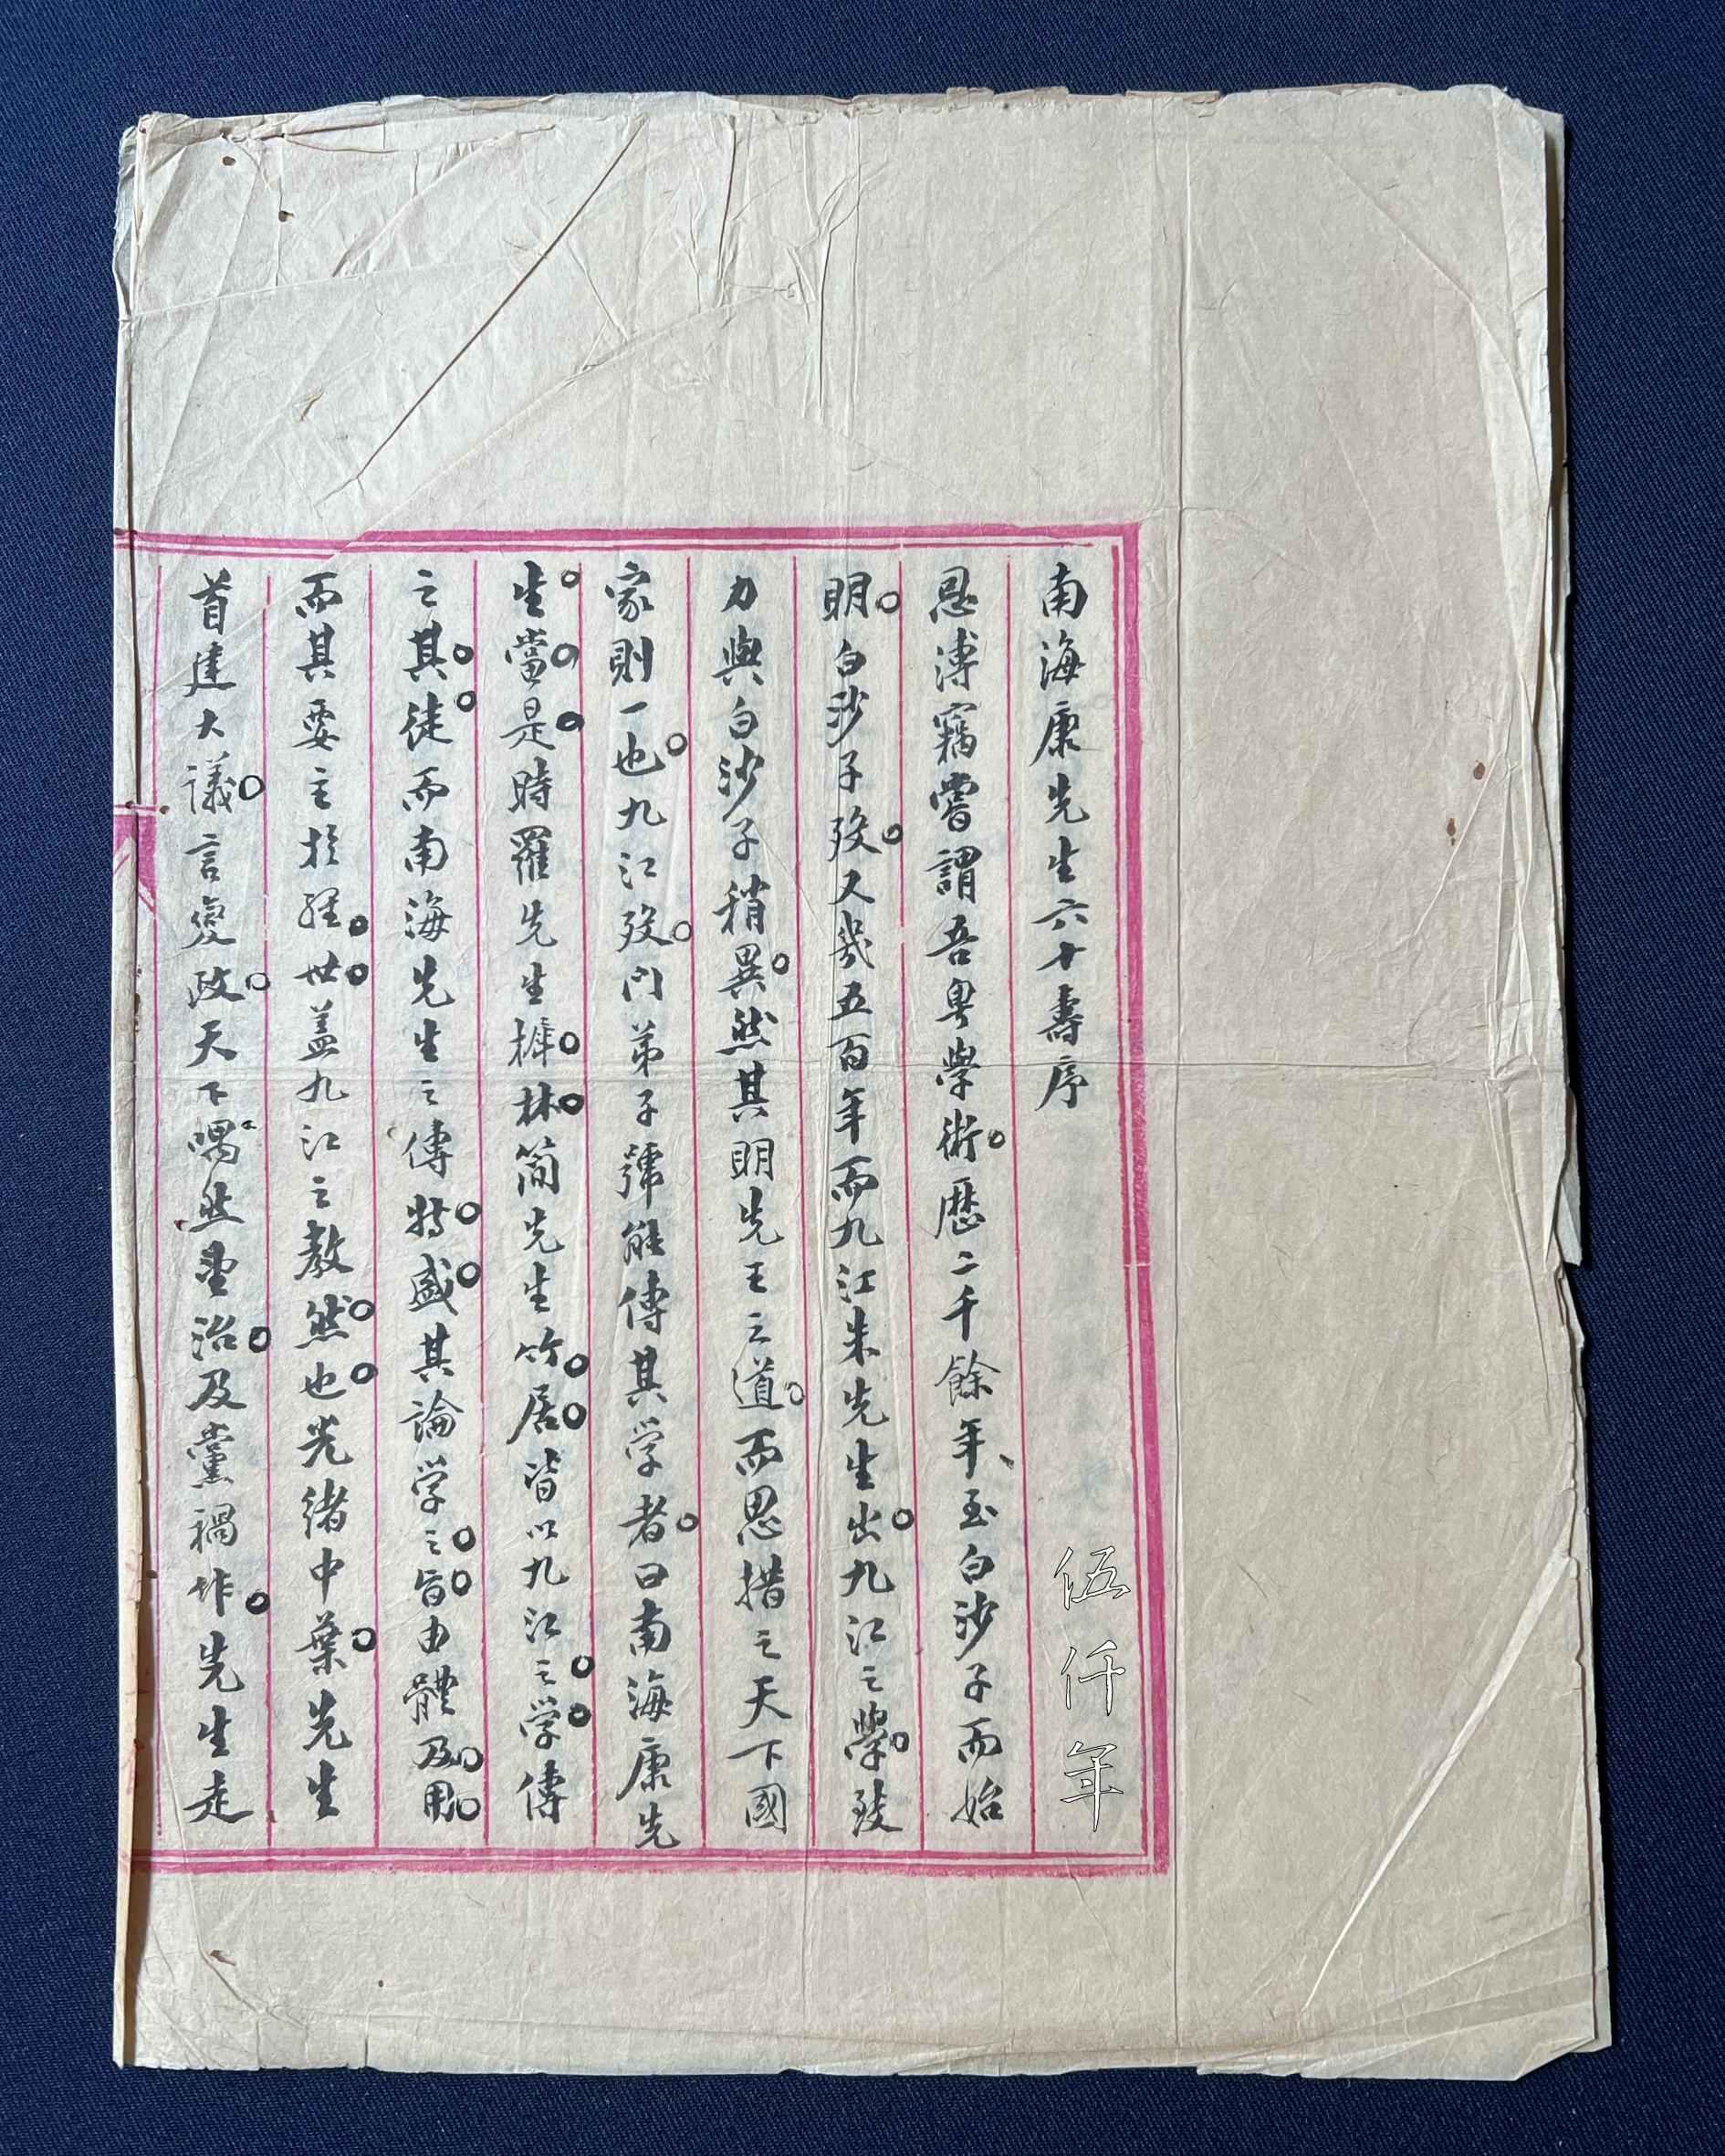 南海康先生六十壽序
伍仟年
恩溥竊嘗謂吾粵學術歷二千餘年至白沙子而始
明白沙子歿又幾五百年而九江朱先生出九江之學致
力與白沙子稍異然其明先王之道而思措之天下國
家則一也九江歿門弟子號能傳其学者曰南海康先
生當是時羅先生林简先生竹居皆以九江之学傳
之其徒而南海先生之傳特盛其論学之旨由體及用
而其要主於經世盖九江之教然也光緒中葉先生
首建大議言變政天下喁然望治及黨禍作先生走